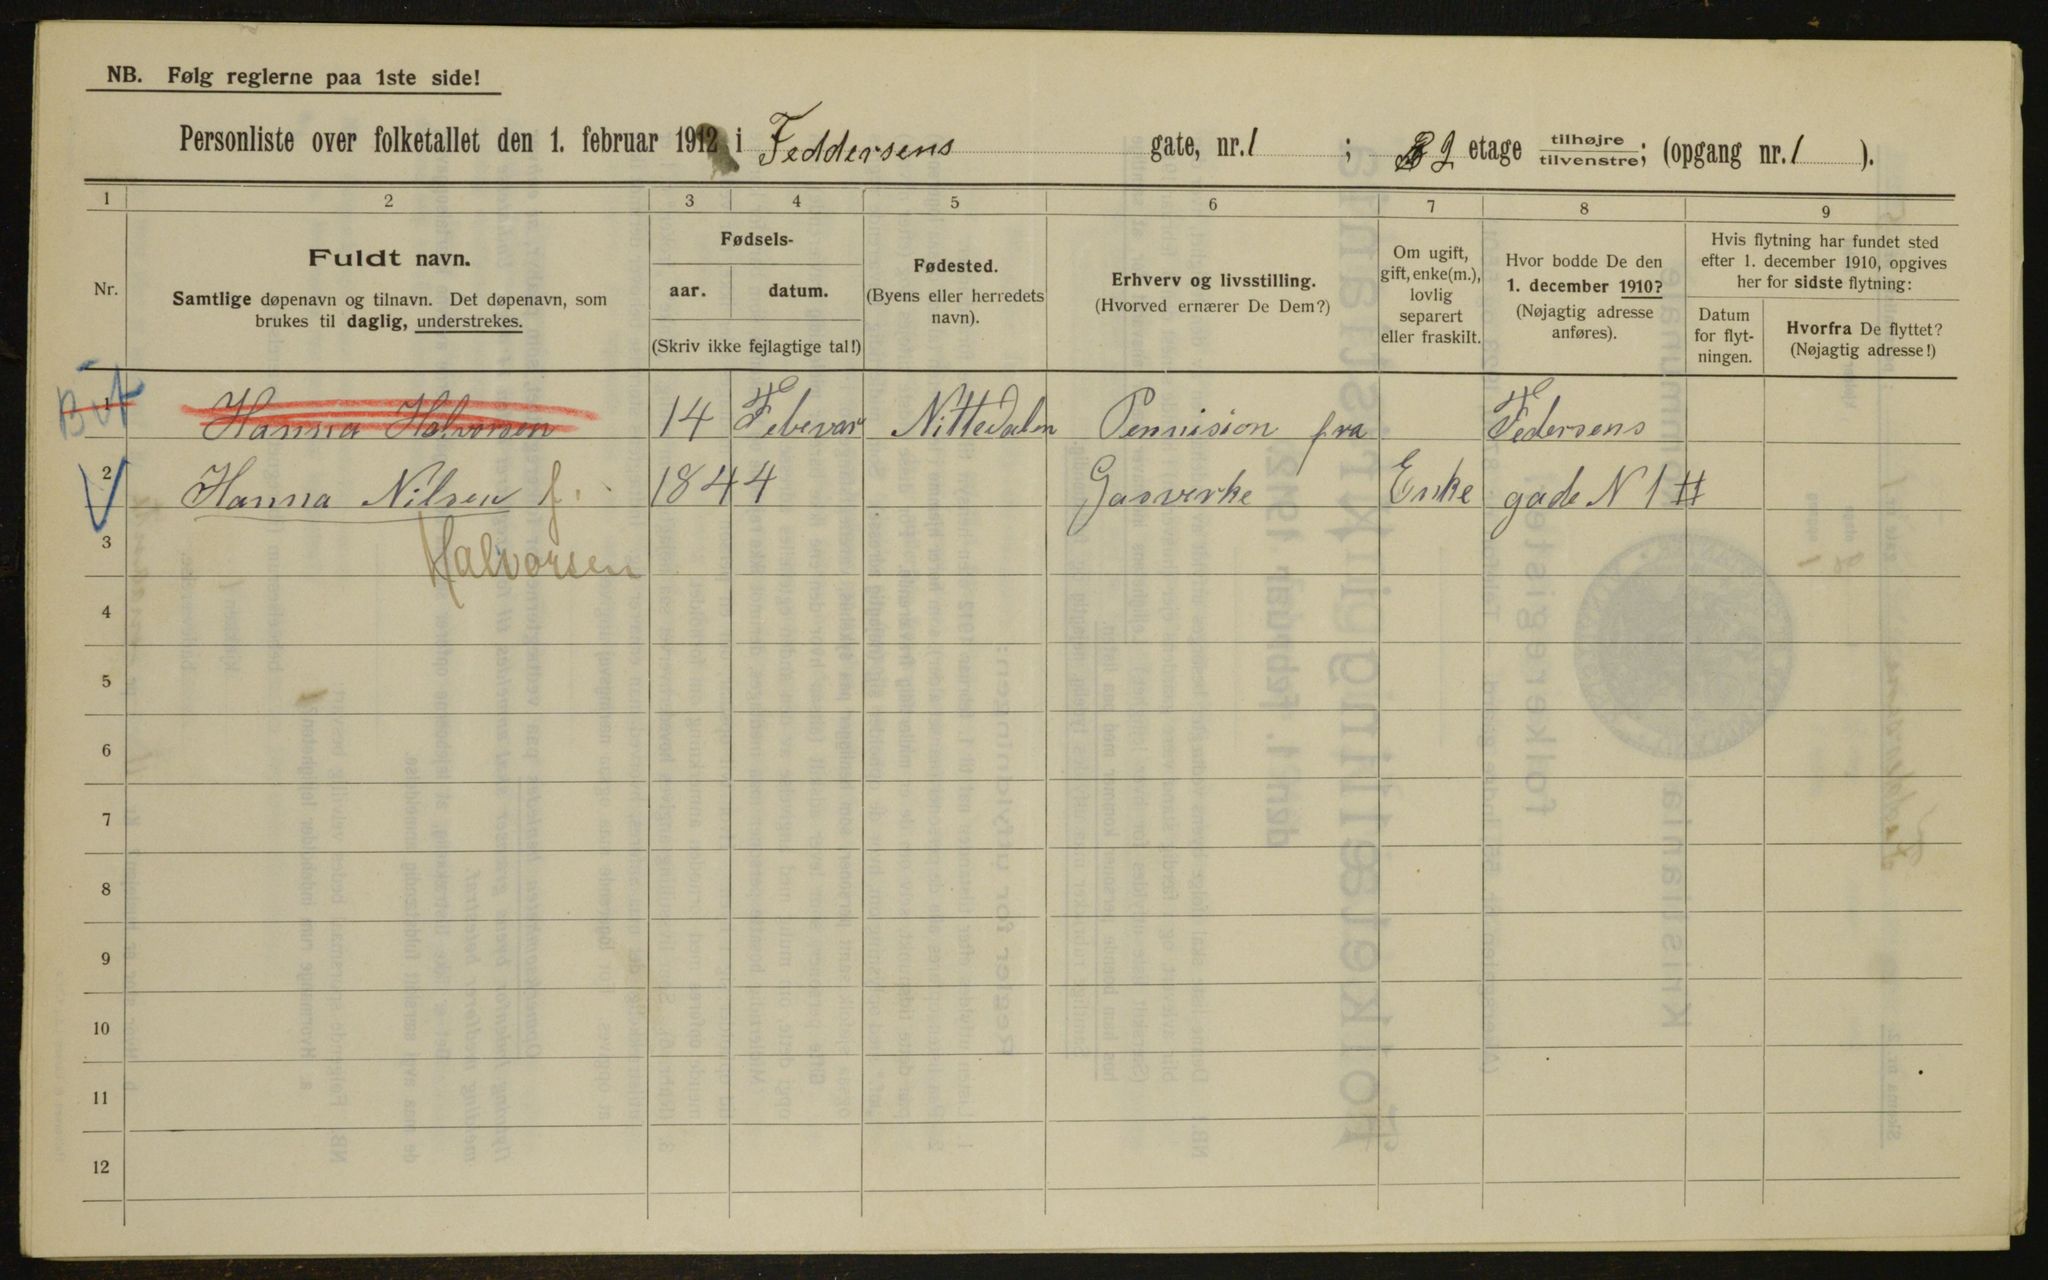 NB. Følg reglerne paa 1ste side!
Personliste over folketallet den 1. februar 1912 i Feddersens gate, nr. 1 ; 2 etage tilhøjre tilvenstre; (opgang nr. 1 ).
1 2 3 4 5 6 7 8 9
Nr.
Fuldt navn.
Samtlige døpenavn og tilnavn. Det døpenavn, som
brukes til daglig, understrekes.
Fødsels-
aar. datum.
(Skriv ikke fejlagtige tal!)
Fødested.
(Byens eller herredets
navn).
Erhverv og livsstilling.
(Hvorved ernærer De Dem?)
Om ugift,
gift, enke(m.),
lovlig
separert
eller fraskilt.
Hvor bodde De den
1. december 1910?
(Nøjagtig adresse
anføres).
Hvis flytning har fundet sted
efter 1. december 1910, opgives
her for sidste flytning:
Datum
for flyt-
ningen.
Hvorfra De flyttet?
(Nøjagtig adresse!)
1 Hanna Halvorsen 14 Febevar Nittedalen Pennision fra Federsens
2 Hanna Nilsen f. 1844 Gasverke Enke gade N 1 #
3 Halvorsen
4
5
6
7
8
9
10
11
12